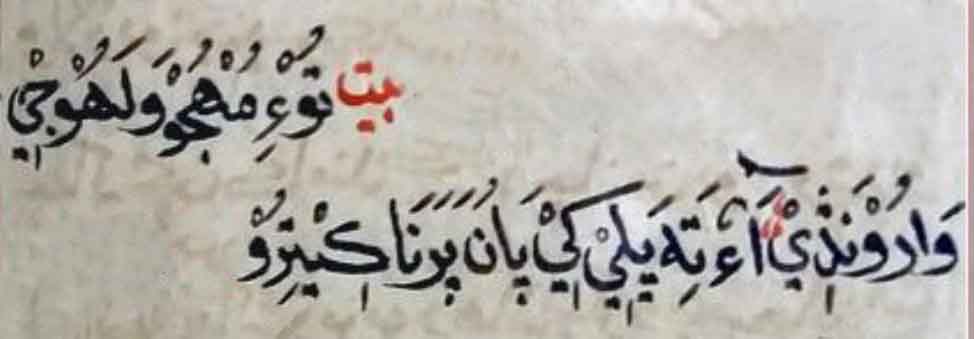 بيت تُوْءِ مُهْجُوْ وَلَهُوْجِيْ
وَارُوْوَنْڌِيْ آءُ تَہ يَلِيْ كِيْ پَانُ پَرَنَا كِيْتِرُوْ